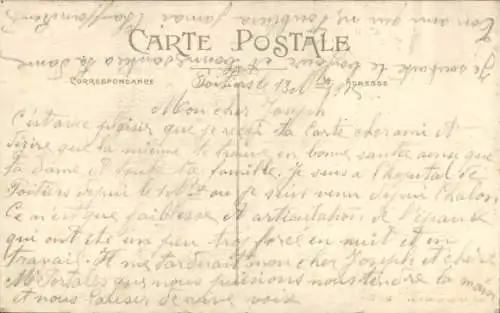 CARTE POSTALE
CORRESPONDANCE
ADRESSE
Poitiers le 13
Mon cher Joseph
C'est avec plaisir que je reçu ta carte cher ami et
désire que la mienne te trouve en bonne santée ainsi que
ta dame et toute ta famille. Je suis a l'hopital de
Poitiers depuis le ou je suis venu depuis Chalon
Ce n'est que faiblesse et articulation de l'épaule
qui ont été un peu trop forcé en nuit et en
travail. Il me tardé mon cher Joseph et chère
que nous puissions nous tendre la main
et nous causer de vive voix
Je souhaite le bonjour et bonne santée a ta Dame
Ton ami qui ne t'oubliera jamais